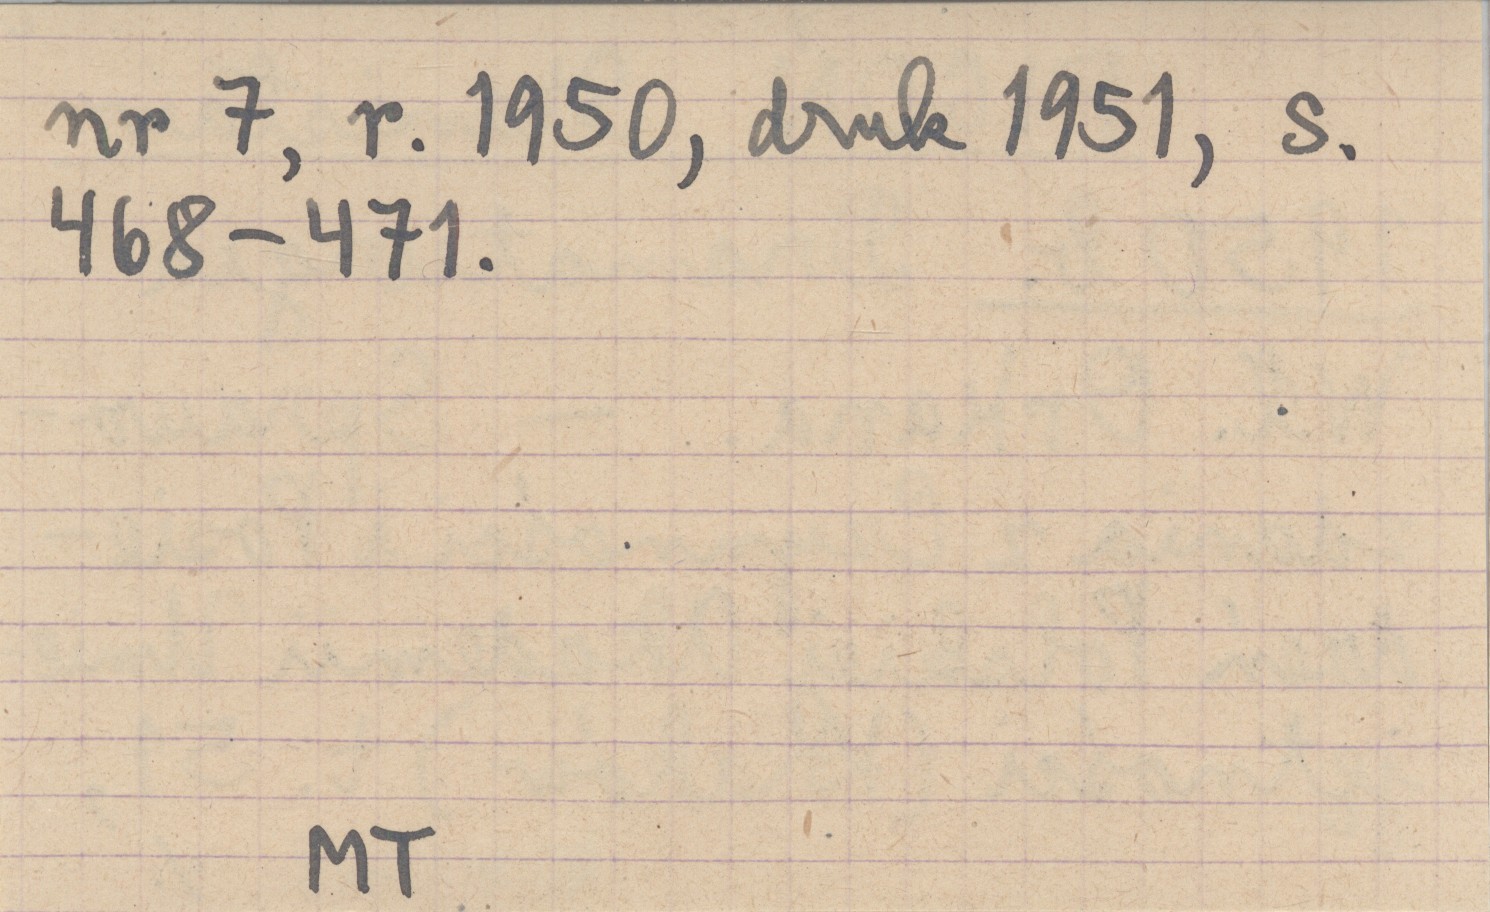 nr 7, r. 1950, druk 1951, s.
468-471.
MT